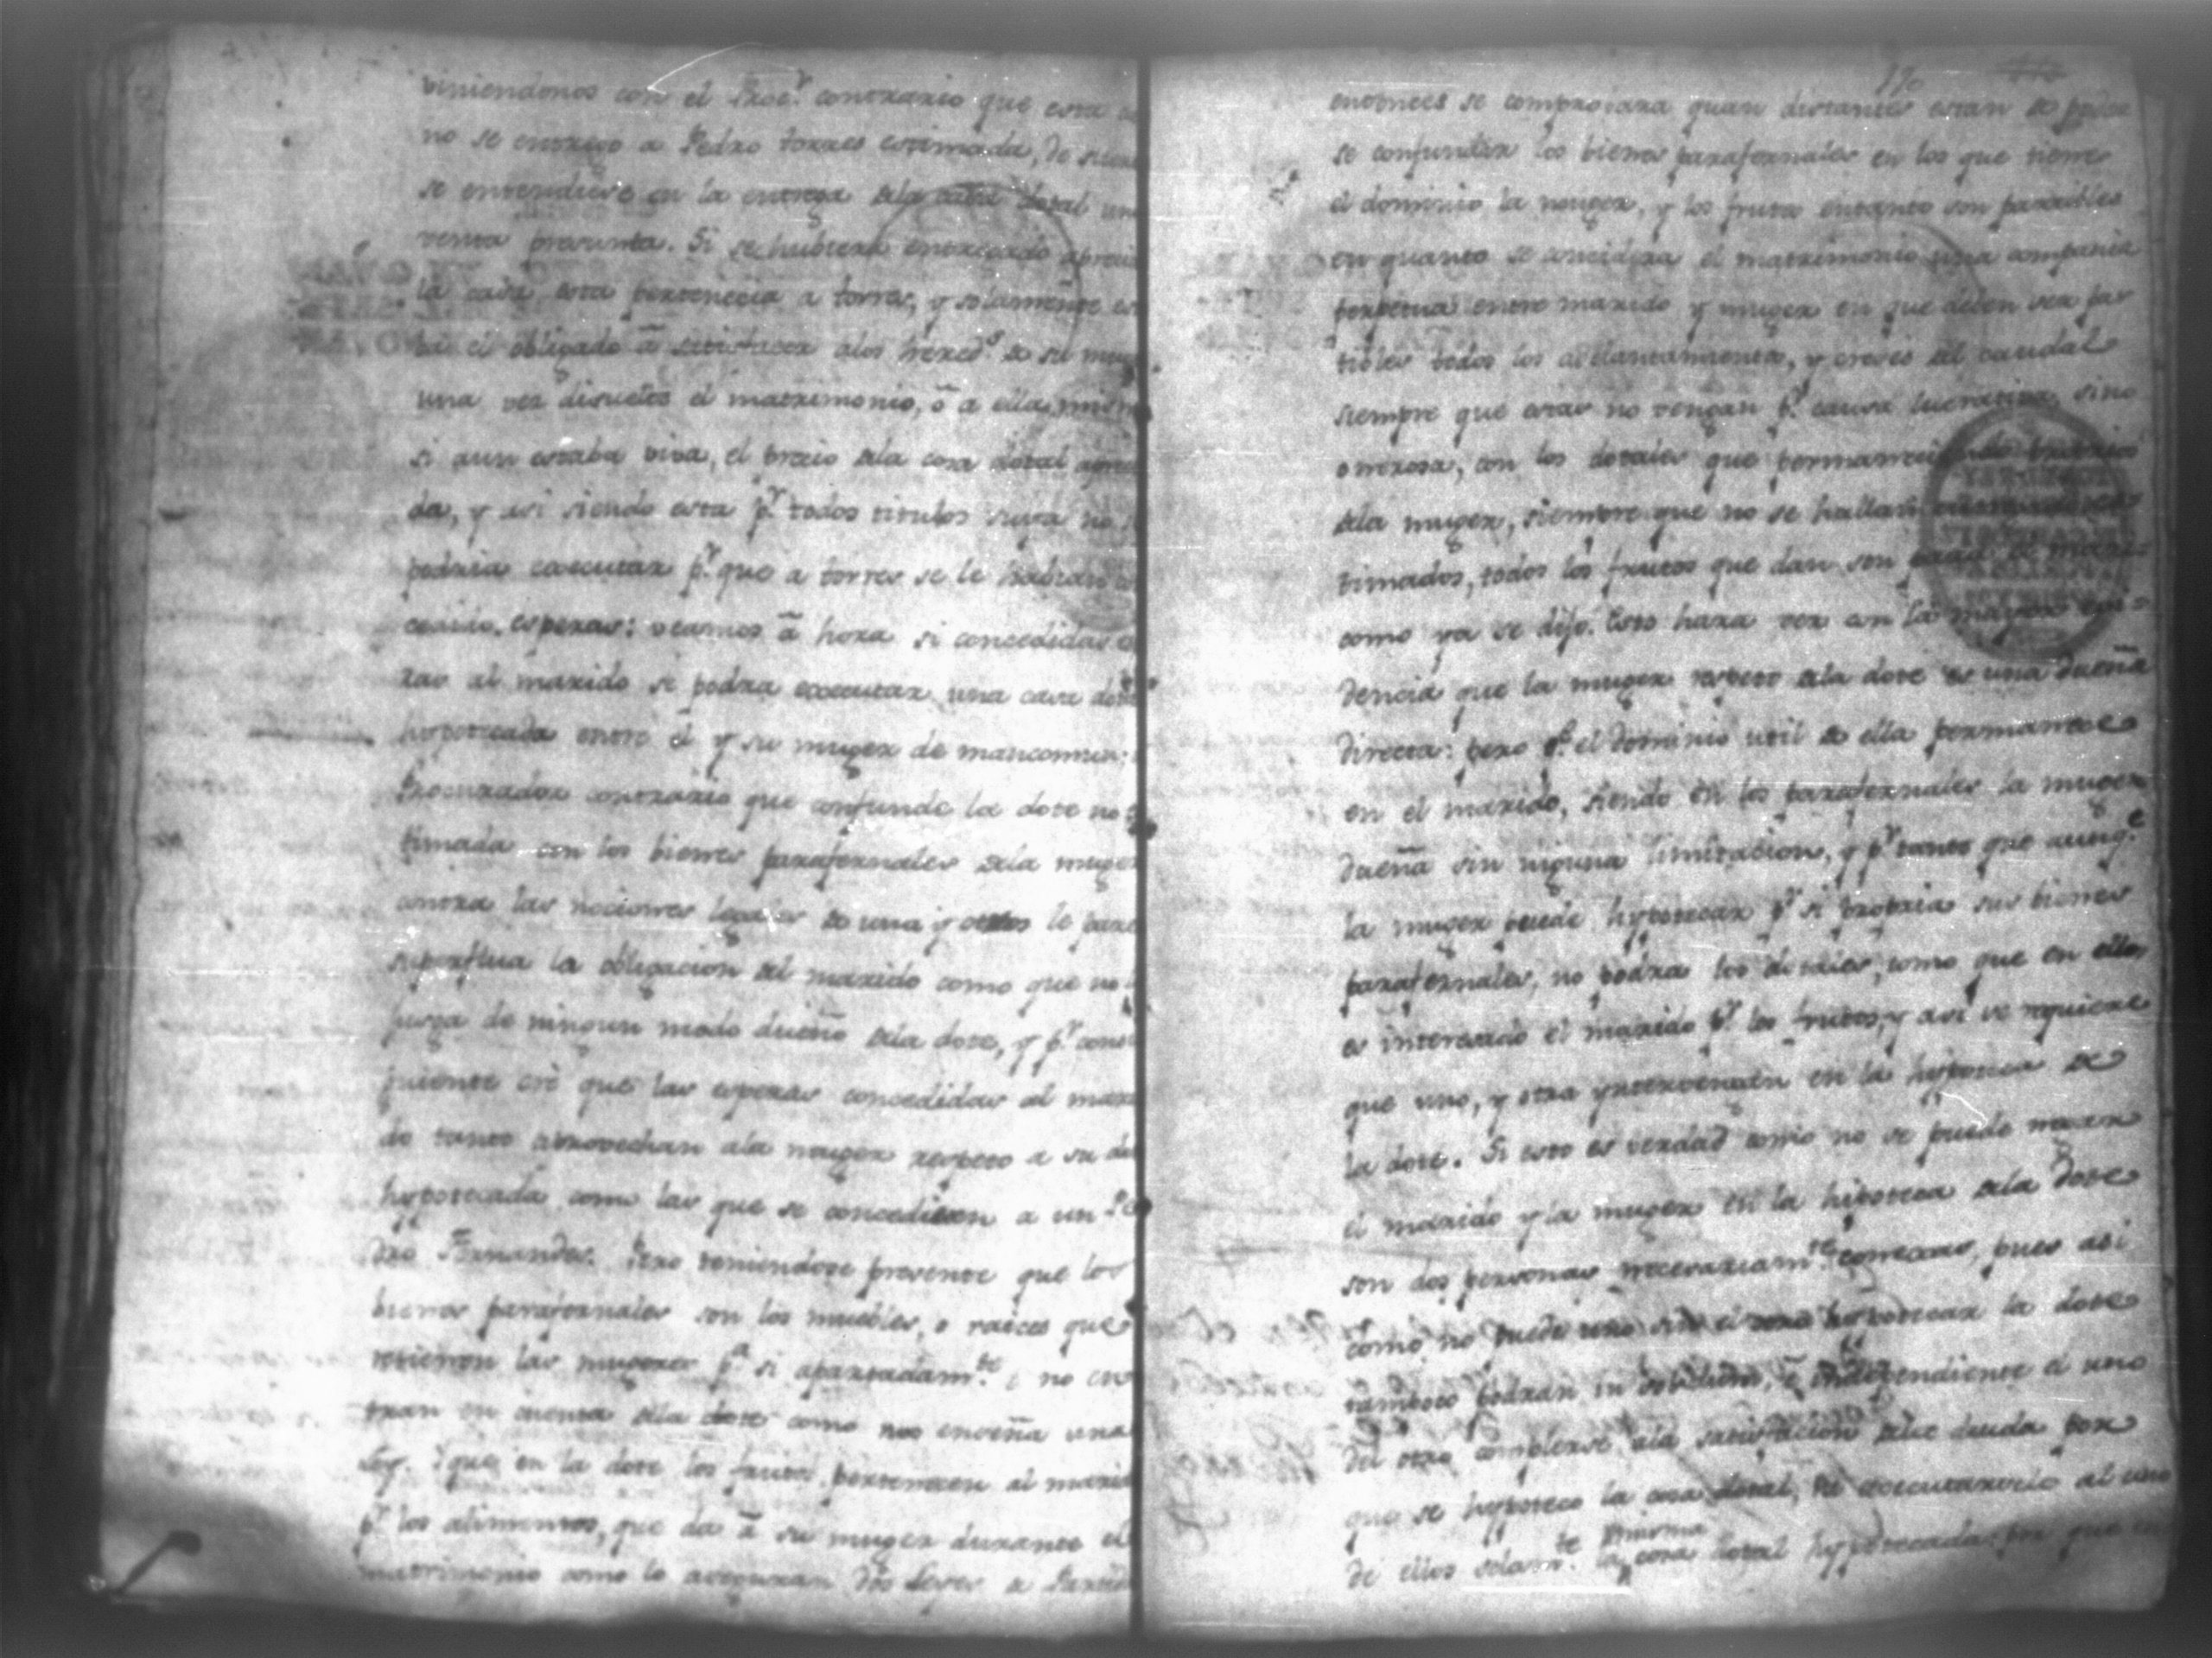 viniendonos con el Proc.r contrario que esta
no se entrego a Pedro torres estimada, de suer
se entendiese en la entrega dela casa dotal una
venta presunta. Si se hubiera entregado aprecia
la casa, esta pertenecia a torres, y solamente es
el obligado ã satisfacer alos hered.s de su mug
una vez disuelto el matrimonio, õ a ella mism
si aun estaba viva, el precio dela cosa dotal aprecia
da, y asi siendo esta p.r todos titulos suya no
podria executar p.r que a torres se le habian
cedido esperas: veamos ã hora si concedidas e
ras al marido se podra executar una casa dota
hypotecada entre el y su muger de mancomun:
Procurador contrario que confunde la dote no
timada con los bienes parafernales dela muger
contra las nociones legales de una y otros le pare
superflua la obligacion del marido como que no
juzga de ningun modo dueño dela dote, y p.r cons
quiente cre que las esperas concedidas al mari
do tanto aprovechan ala muger respeto a su do
hypotecada como las que se concedieren a un Pe
dro Fernandes. Pero teniendose presente que los
bienes parafernales son los muebles, o raices que
retienen las mugeres p.a si apartadam.te y no en
tran en cuenta dela dote como nos enseña una
Ley. Y que en la dote los frutos pertenecen al marid
p.r los alimentos, que da ã su muger durante el
matrimonio como lo aseguran dos Leyes de Partid
190
entonces se comprobara quan distantes estan de poder
se confundir los bienes parafernales en los que tiene
el dominio la muger, y los frutos entanto son partibles
en quanto se considera el matrimonio una compania
perpetua entre marido y muger en que deben ser par
tibles todos los adelantamientos, y creces del caudal
siempre que estas no vengan p.r causa lucrativa, sino
onerosa, con los dotales que permaneciendo
dela muger, siempre que no se hallan es
timados, todos los frutos que dan son para el mari
como ya se dijo. Esto hara ver con la mayor evi
dencia que la muger respeto dela dote es una dueña
directa: pero q.e el dominio util de ella permanece
en el marido, siendo en los parafernales la muger
dueña sin niguna limitacion, y p.r tanto que aunq.e
la muger puede hypotecar p.r si propria sus bienes
parafernales, no podra los dotales, como que en ellos
es interesado el marido p.r los frutos, y asi se requiere
que uno, y otra yntervengan en la hypoteca de
la dote. Si esto es verdad como no se puede negar
el marido y la muger en la hipoteca dela dote
son dos personas necesariam.te conexas, pues asi
como no puede uno sin el otro hypotecar la dote
tampoco podran in solidum, õ independiente el uno
del otro completarse ala satisfacion dela deuda por
que se hypoteco la cosa dotal, ni executarselo al uno
de ellos solam.te la misma cosa dotal hypotecada: por que